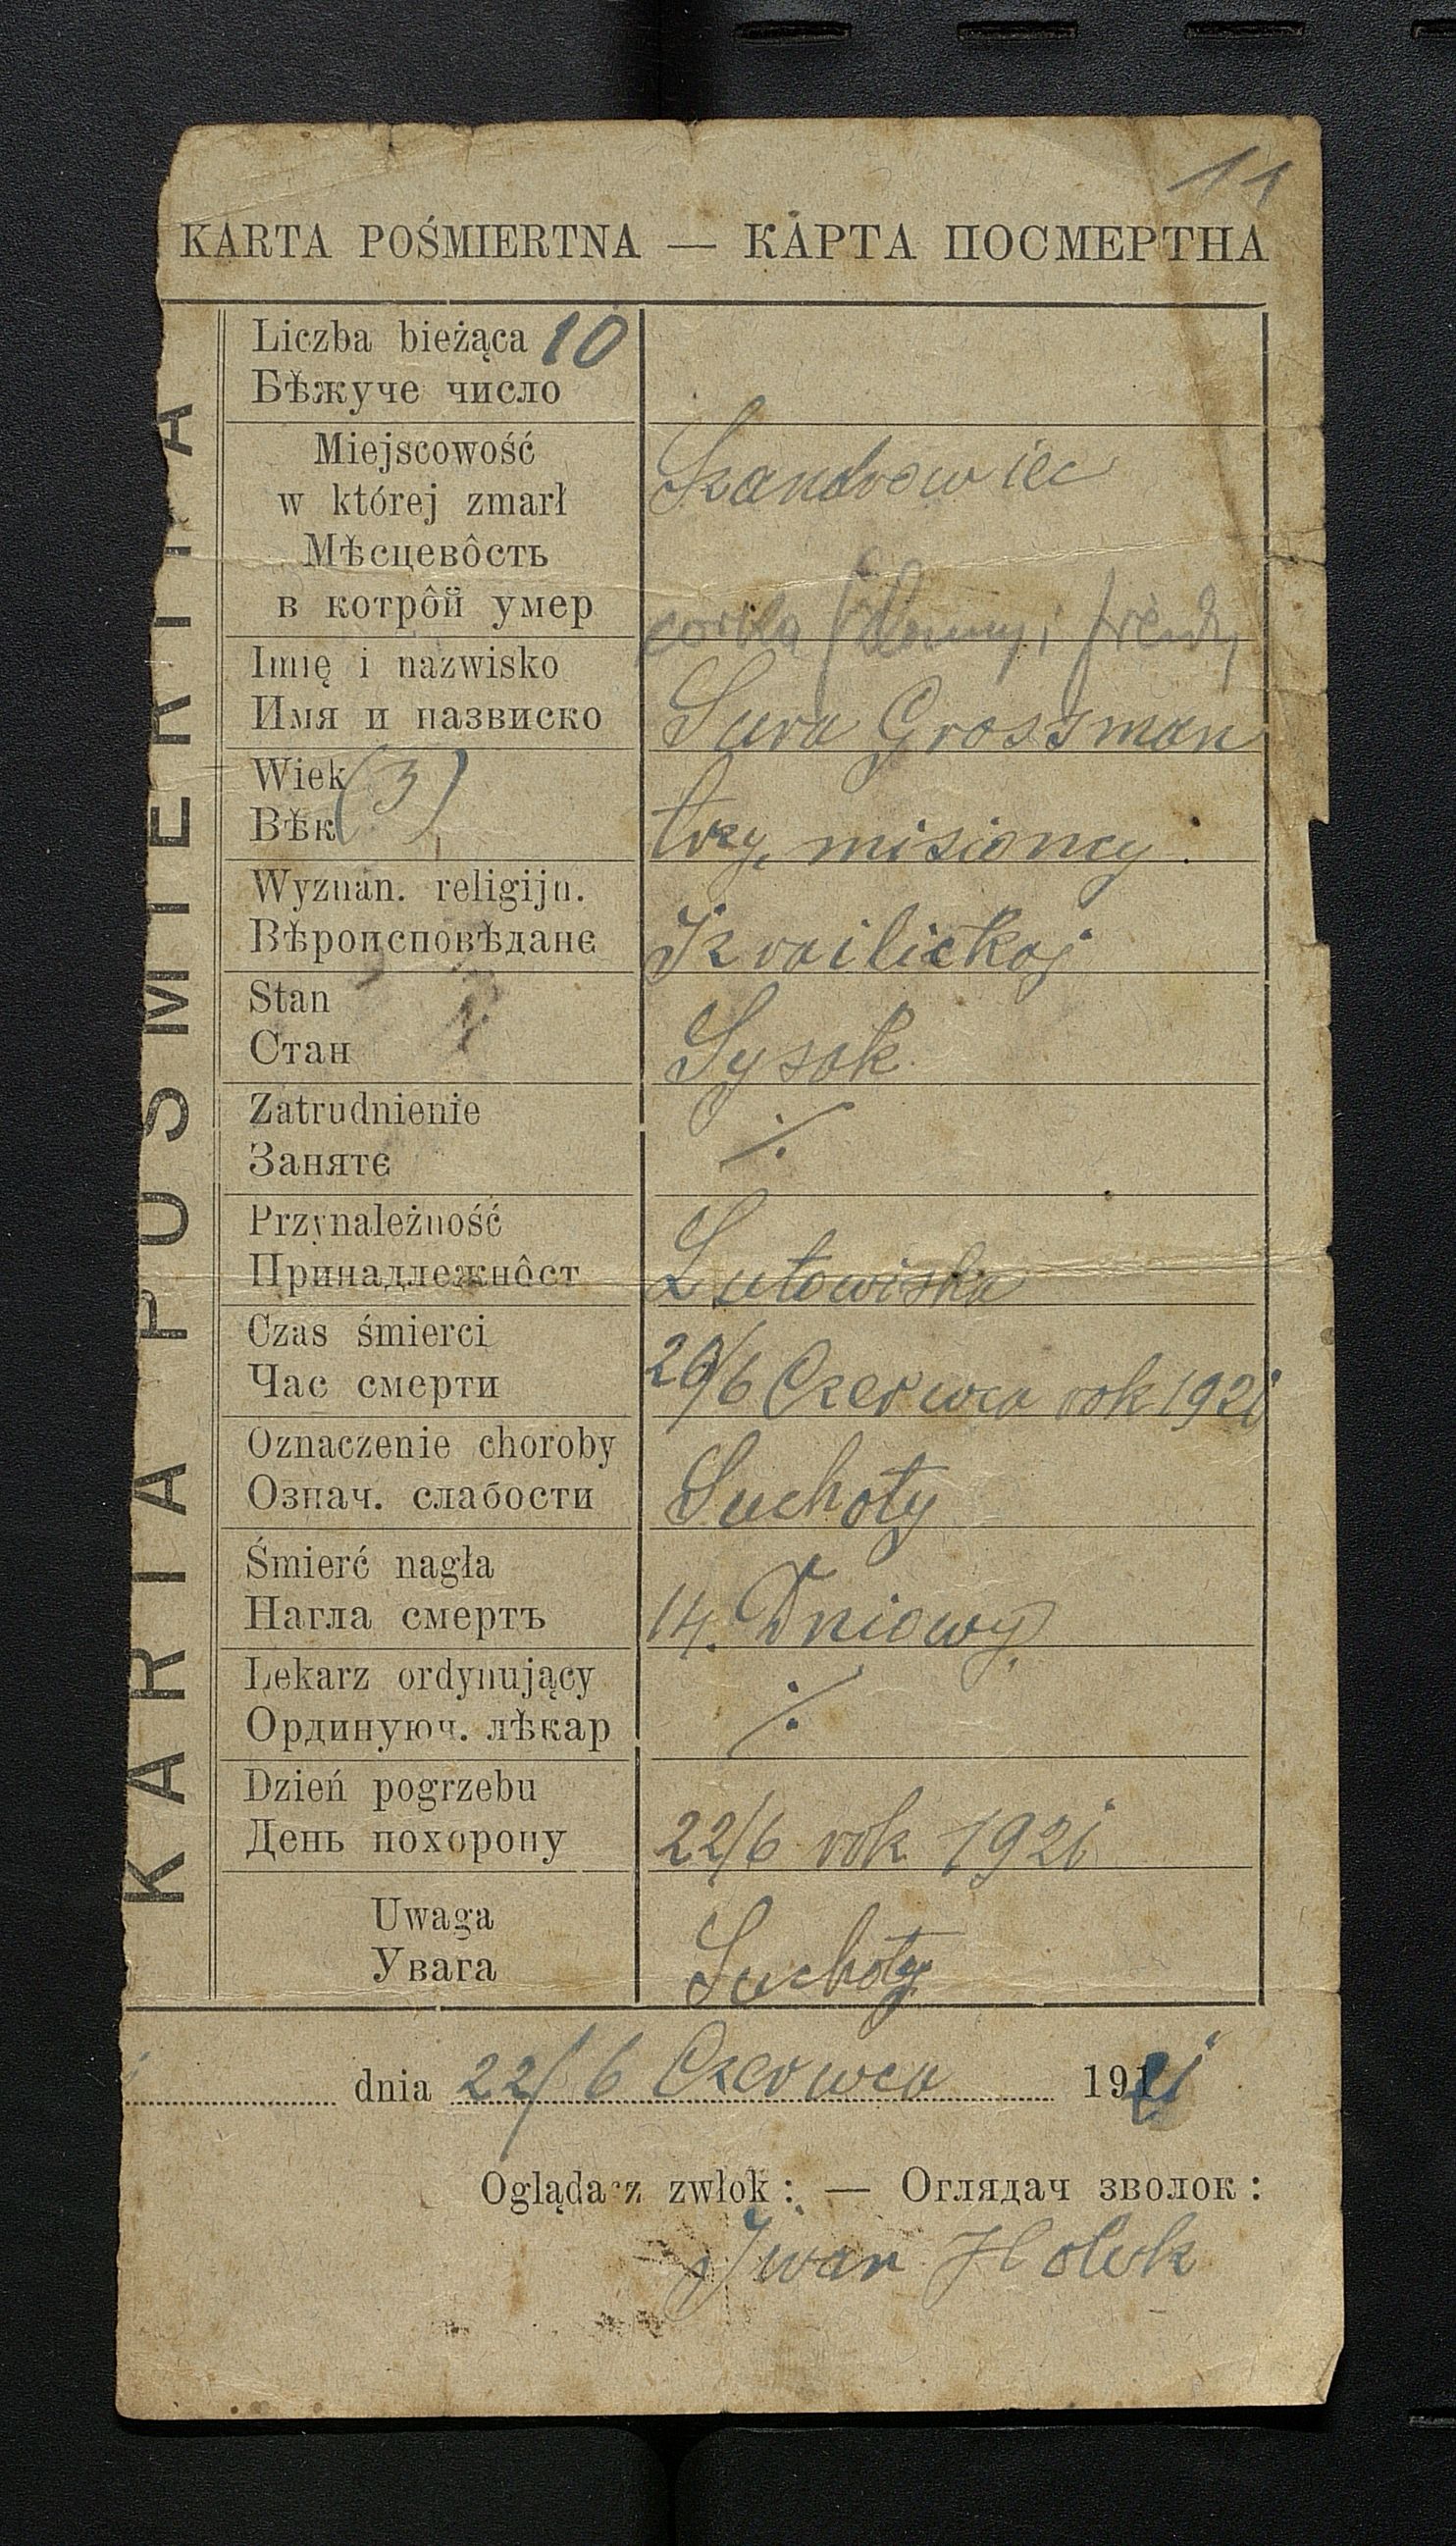 11
KARTA POŚMIERTNA — КАРТА ПОСМЕРТНА
KARTA POŚMIERTNA
Liczba bieżąca 10
Бѣжуче число
Miejscowość
w której zmarł
Мѣсцевôсть
в котрôй умер
Skandrowiec
córka i
Imię i nazwisko
Имя и назвиско
Sura Grossman
Wiek (3)
Вѣк
trzy misioncy
Wyznan. religijn.
Вѣроисповѣданє
Izrailickoj
Stan
Стан
Sysok
Zatrudnienie
Занятє
./.
Przynależność
Принадлежнôст
Lutowiska
Czas śmierci
Час смерти
20/6 Czerwca rok 1921
Oznaczenie choroby
Означ. слабости
Suchoty
Śmierć nagła
Нагла смерть
14. Dniowy
Lekarz ordynujący
Ординуюч. лѣкар
./.
Dzień pogrzebu
День похорону
22/6 rok 1921
Uwaga
Увага
Suchoty
dnia 22/6 Czerwca 1921
Oglądacz zwłok: — Оглядач зволок:
Iwan